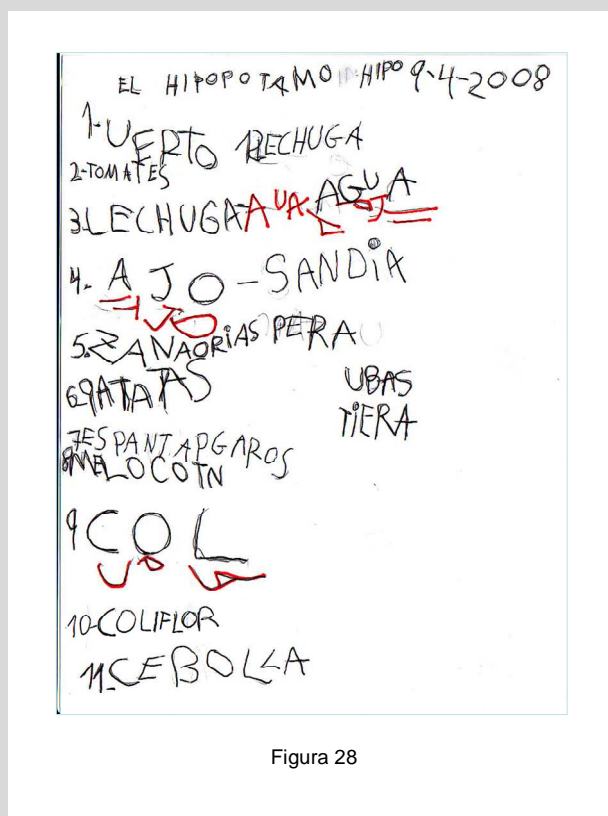 EL HIPOPOTAMO HIPO 9-4-2008
1-UERTO LECHUGA
2-TOMATES
3LECHUGA AUA AGUA
4- AJO-SANDIA
AJO
5-ZANAORIAS PERA
6-PATATAS UBAS
TIERA
7ESPANTAPGAROS
8MELOCOTN
9COL
10-COLIFLOR
11-CEBOLLA
Figura 28